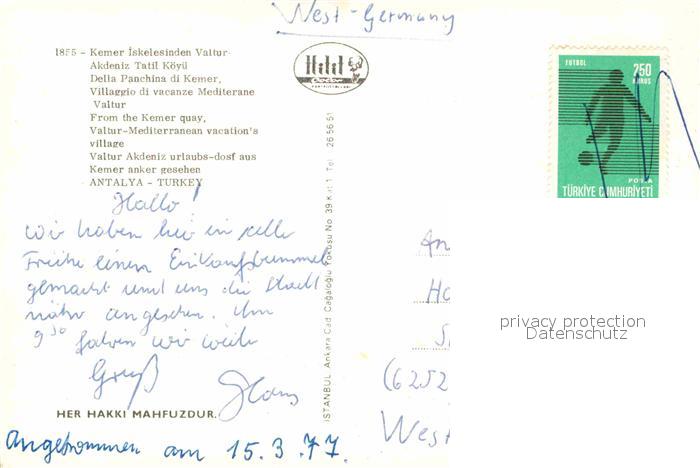 West-Germany
1855 - Kemer İskelesinden Valtur-
Akdeniz Tatil Köyü
Della Panchina di Kemer,
Villaggio di vacanze Mediterane
Valtur
From the Kemer quay,
Valtur-Mediterranean vacation's
village
Valtur Akdeniz urlaubs-dosf aus
Kemer anker gesehen
ANTALYA - TURKEY
Hitit
Color
FUTBOL
250
KURUŞ
POSTA
TÜRKİYE CUMHURİYETİ
Hallo!
Wir haben hier in aller
Frühe einen Einkaufsbummel
gemacht und uns die Stadt
näher angesehen. Um
9³⁰ fahren wir weiter
Gruß
Hans
HER HAKKI MAHFUZDUR.
Angekommen am 15.3.77.
İSTANBUL Ankara Cad Cağaloğlu Yokuşu No 39 Kat 1 Tel: 26 56 51
An
Ho
(6252
West
privacy protection
Datenschutz